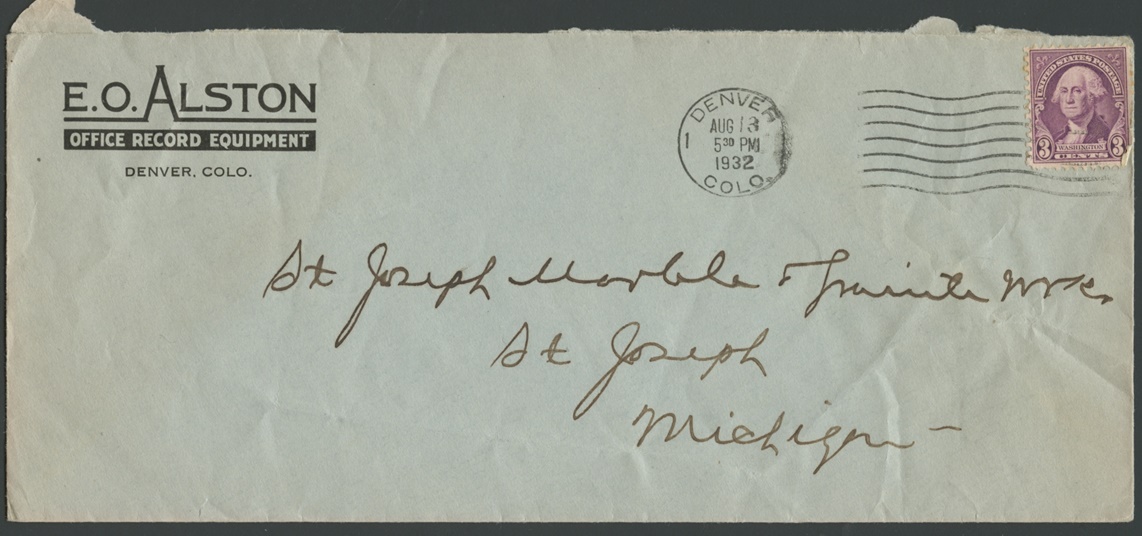 E.O. ALSTON
OFFICE RECORD EQUIPMENT
DENVER, COLO.
DENVER
1
AUG 13
5 30 PM
1932
COLO.
UNITED STATES POSTAGE
3 WASHINGTON 3
CENTS
St Joseph Marble & Granite Wks.
St Joseph
Michigan -